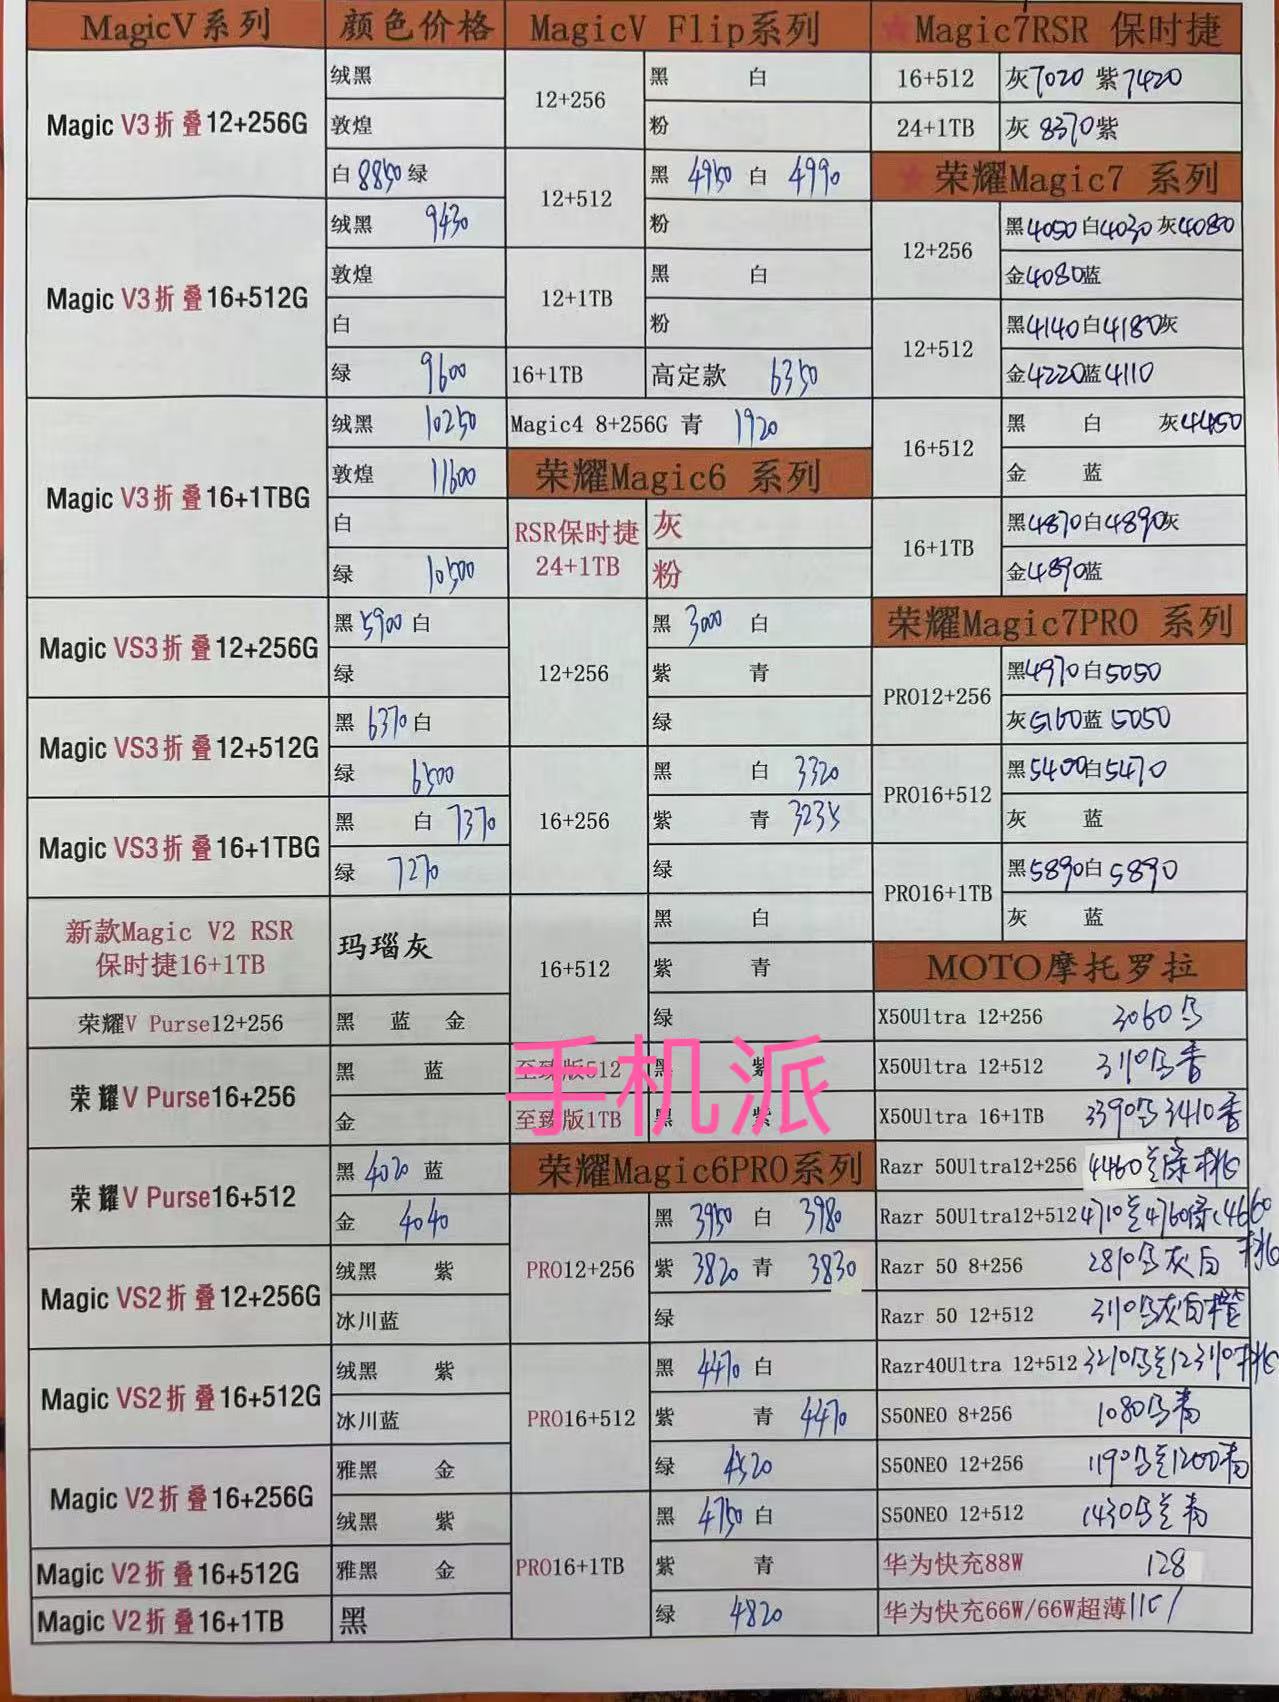 MagicV系列 颜色价格
Magic V3折叠12+256G
绒黑
敦煌
白 8850 绿
Magic V3折叠16+512G
绒黑 9430
敦煌
白
绿 9600
Magic V3折叠16+1TBG
绒黑 10250
敦煌 11600
白
绿 10500
Magic VS3折叠12+256G
黑 5900 白
绿
Magic VS3折叠12+512G
黑 6370 白
绿 6500
Magic VS3折叠16+1TBG
黑 白 7370
绿 7270
新款Magic V2 RSR
保时捷16+1TB
玛瑙灰
荣耀V Purse12+256
黑 蓝 金
荣耀V Purse16+256
黑 蓝
金
荣耀V Purse16+512
黑 4020 蓝
金 4040
Magic VS2折叠12+256G
绒黑 紫
冰川蓝
Magic VS2折叠16+512G
绒黑 紫
冰川蓝
Magic V2折叠16+256G
雅黑 金
绒黑 紫
Magic V2折叠16+512G
雅黑 金
Magic V2折叠16+1TB
黑
MagicV Flip系列
12+256
黑 白
粉
12+512
黑 4950 白 4990
粉
12+1TB
黑 白
粉
16+1TB 高定款 6350
Magic4 8+256G 青 1920
荣耀Magic6 系列
RSR保时捷
24+1TB
灰
粉
12+256
黑 3000 白
紫 青
绿
16+256
黑 白 3320
紫 青 3235
绿
16+512
黑 白
紫 青
绿
至臻版512 黑 紫
至臻版1TB 黑 紫
手机派
荣耀Magic6PRO系列
PRO12+256
黑 3950 白 3980
紫 3820 青 3830
绿
PRO16+512
黑 4470 白
紫 青 4470
绿 4520
PRO16+1TB
黑 4750 白
紫 青
绿 4820
★Magic7RSR 保时捷
16+512 灰7020 紫7420
24+1TB 灰 8370紫
★荣耀Magic7 系列
12+256
黑4050 白4030 灰4080
金4080蓝
12+512
黑4140白4180灰
金4220蓝4110
16+512
黑 白 灰4450
金 蓝
16+1TB
黑4870白4890灰
金4890蓝
荣耀Magic7PRO 系列
PRO12+256
黑4970白5050
灰5160蓝5050
PRO16+512
黑5400白5470
灰 蓝
PRO16+1TB
黑5890白5890
灰 蓝
MOTO摩托罗拉
X50Ultra 12+256 3060
X50Ultra 12+512 3110
X50Ultra 16+1TB 3390 3410
Razr 50Ultra12+256 4460
Razr 50Ultra12+512 4710 4760 4660
Razr 50 8+256 2810 灰白
Razr 50 12+512 3110 灰白
Razr40Ultra 12+512 3210
S50NEO 8+256 1080
S50NEO 12+256 1190 1200
S50NEO 12+512 1430
华为快充88W 128
华为快充66W/66W超薄